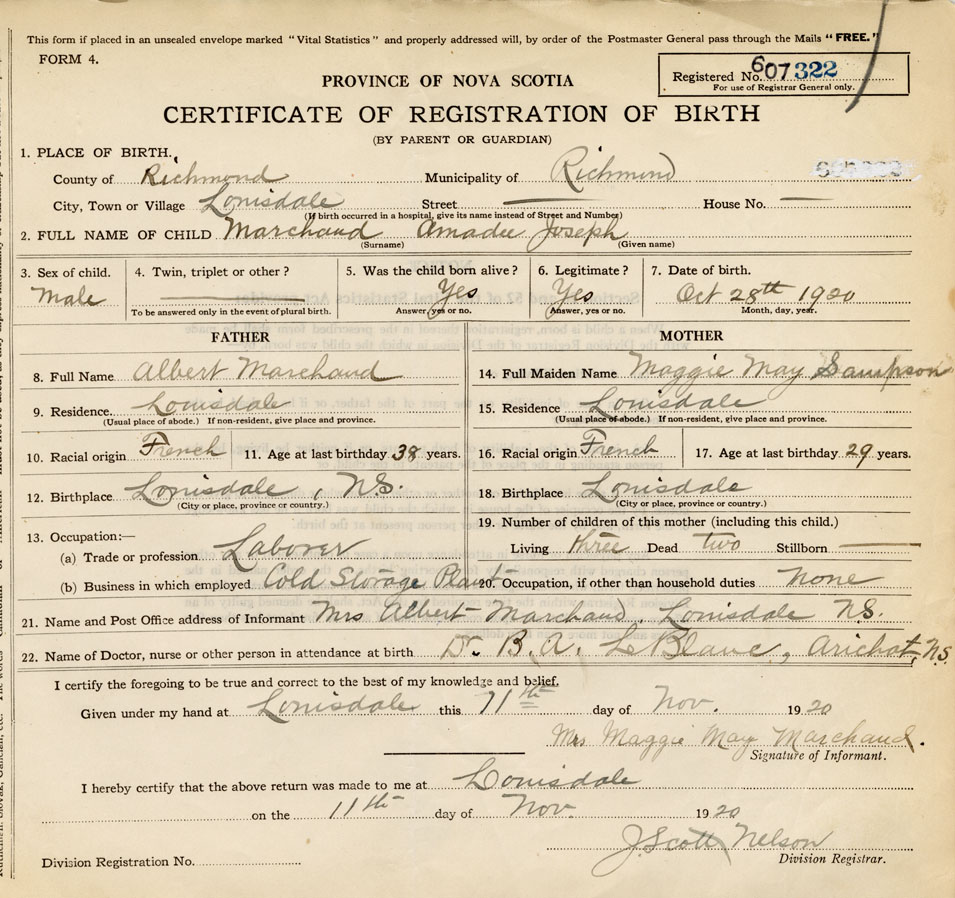 This form if placed in an unsealed envelope marked "Vital Statistics" and properly addressed will, by order of the Postmaster General pass through the Mails "FREE."
FORM 4.
Registered No. 607322
For use of Registrar General only.
PROVINCE OF NOVA SCOTIA
CERTIFICATE OF REGISTRATION OF BIRTH
(BY PARENT OR GUARDIAN)
1. PLACE OF BIRTH.
County of Richmond Municipality of Richmond
City, Town or Village Louisdale Street — House No. —
(If birth occurred in a hospital, give its name instead of Street and Number)
2. FULL NAME OF CHILD Marchand Amadee Joseph
(Surname) (Given name)
3. Sex of child. 4. Twin, triplet or other? 5. Was the child born alive? 6. Legitimate? 7. Date of birth.
Male — Yes Yes Oct 28th 1920
To be answered only in the event of plural birth. Answer, yes or no. Answer, yes or no. Month, day, year.
FATHER
8. Full Name Albert Marchand
9. Residence. Louisdale
(Usual place of abode.) If non-resident, give place and province.
10. Racial origin French 11. Age at last birthday 38 years.
12. Birthplace Louisdale, N.S.
(City or place, province or country.)
13. Occupation:—
(a) Trade or profession Laborer
(b) Business in which employed Cold Storage Plant
MOTHER
14. Full Maiden Name Maggie May Sampson
15. Residence Louisdale
(Usual place of abode.) If non-resident, give place and province.
16. Racial origin French 17. Age at last birthday 29 years.
18. Birthplace Louisdale
(City or place, province or country.)
19. Number of children of this mother (including this child.)
Living three Dead two Stillborn —
20. Occupation, if other than household duties None
21. Name and Post Office address of Informant Mrs Albert Marchand, Louisdale N.S.
22. Name of Doctor, nurse or other person in attendance at birth Dr. B. A. LeBlanc, Arichat, N.S.
I certify the foregoing to be true and correct to the best of my knowledge and belief.
Given under my hand at Louisdale this 11th day of Nov. 1920
Mrs Maggie May Marchand.
Signature of Informant.
I hereby certify that the above return was made to me at Louisdale
on the 11th day of Nov. 1920
J. Scott Nelson
Division Registration No. Division Registrar.